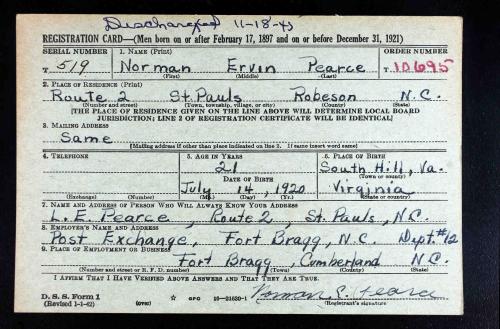 Discharged 11-18-43
REGISTRATION CARD—(Men born on or after February 17, 1897 and on or before December 31, 1921)
SERIAL NUMBER 1. NAME (Print) ORDER NUMBER
T 519 Norman Ervin Pearce T 10695
(First) (Middle) (Last)
2. PLACE OF RESIDENCE (Print)
Route 2 St. Pauls Robeson N.C.
(Number and street) (Town, township, village, or city) (County) (State)
[THE PLACE OF RESIDENCE GIVEN ON THE LINE ABOVE WILL DETERMINE LOCAL BOARD
JURISDICTION; LINE 2 OF REGISTRATION CERTIFICATE WILL BE IDENTICAL]
3. MAILING ADDRESS
Same
[Mailing address if other than place indicated on line 2. If same insert word same]
4. TELEPHONE 5. AGE IN YEARS 6. PLACE OF BIRTH
21 South Hill, Va.
DATE OF BIRTH (Town or county)
July 14, 1920 Virginia
(Exchange) (Number) (Mo.) (Day) (Yr.) (State or country)
7. NAME AND ADDRESS OF PERSON WHO WILL ALWAYS KNOW YOUR ADDRESS
L. E. Pearce, Route 2 St. Pauls, N.C.
8. EMPLOYER'S NAME AND ADDRESS
Post Exchange, Fort Bragg, N.C. Dept. #12
9. PLACE OF EMPLOYMENT OR BUSINESS
Fort Bragg, Cumberland N.C.
(Number and street or R. F. D. number) (Town) (County) (State)
I AFFIRM THAT I HAVE VERIFIED ABOVE ANSWERS AND THAT THEY ARE TRUE.
D. S. S. Form 1
(Revised 1-1-42) (over) ☆ GPO 16—21630-1 Norman E. Pearce
(Registrant's signature)